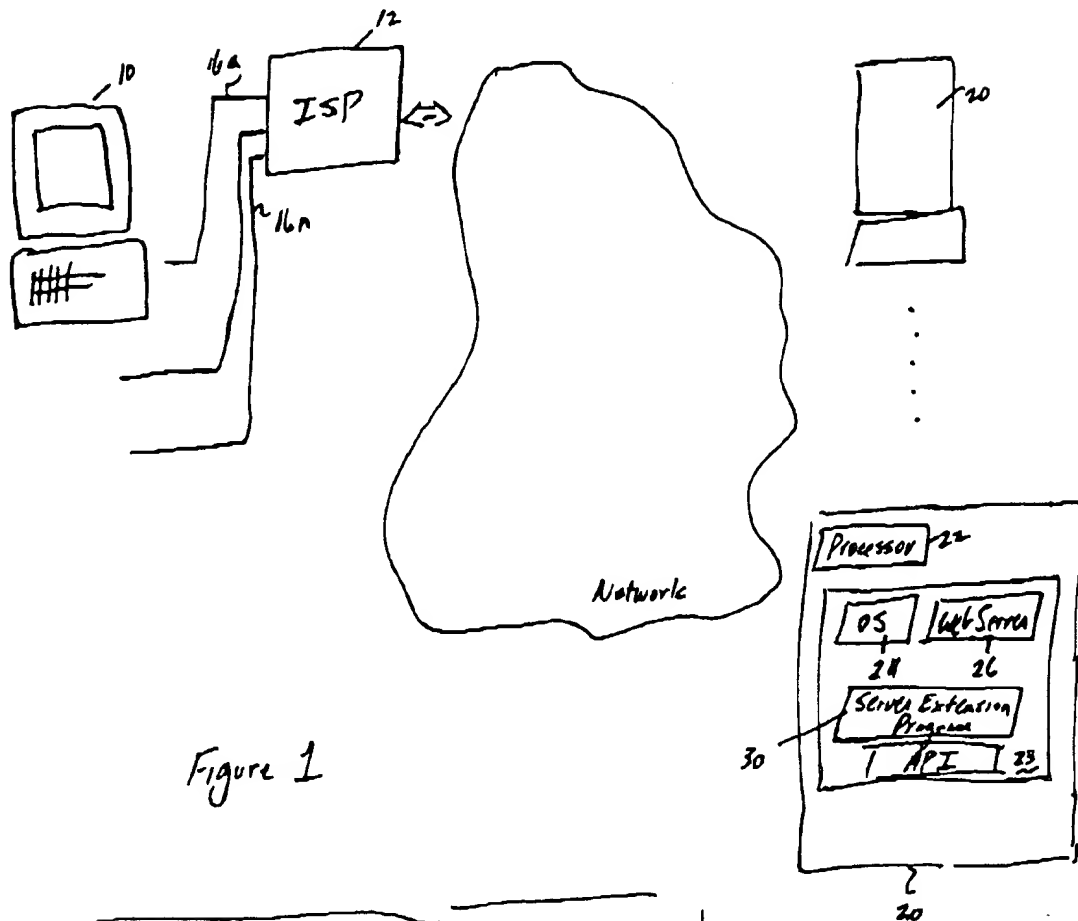 10
16a
12
ISP
16n
20
Network
Processor
22
OS
Web Server
24
26
Server Extension
Program
30
API
23
20
Figure 1